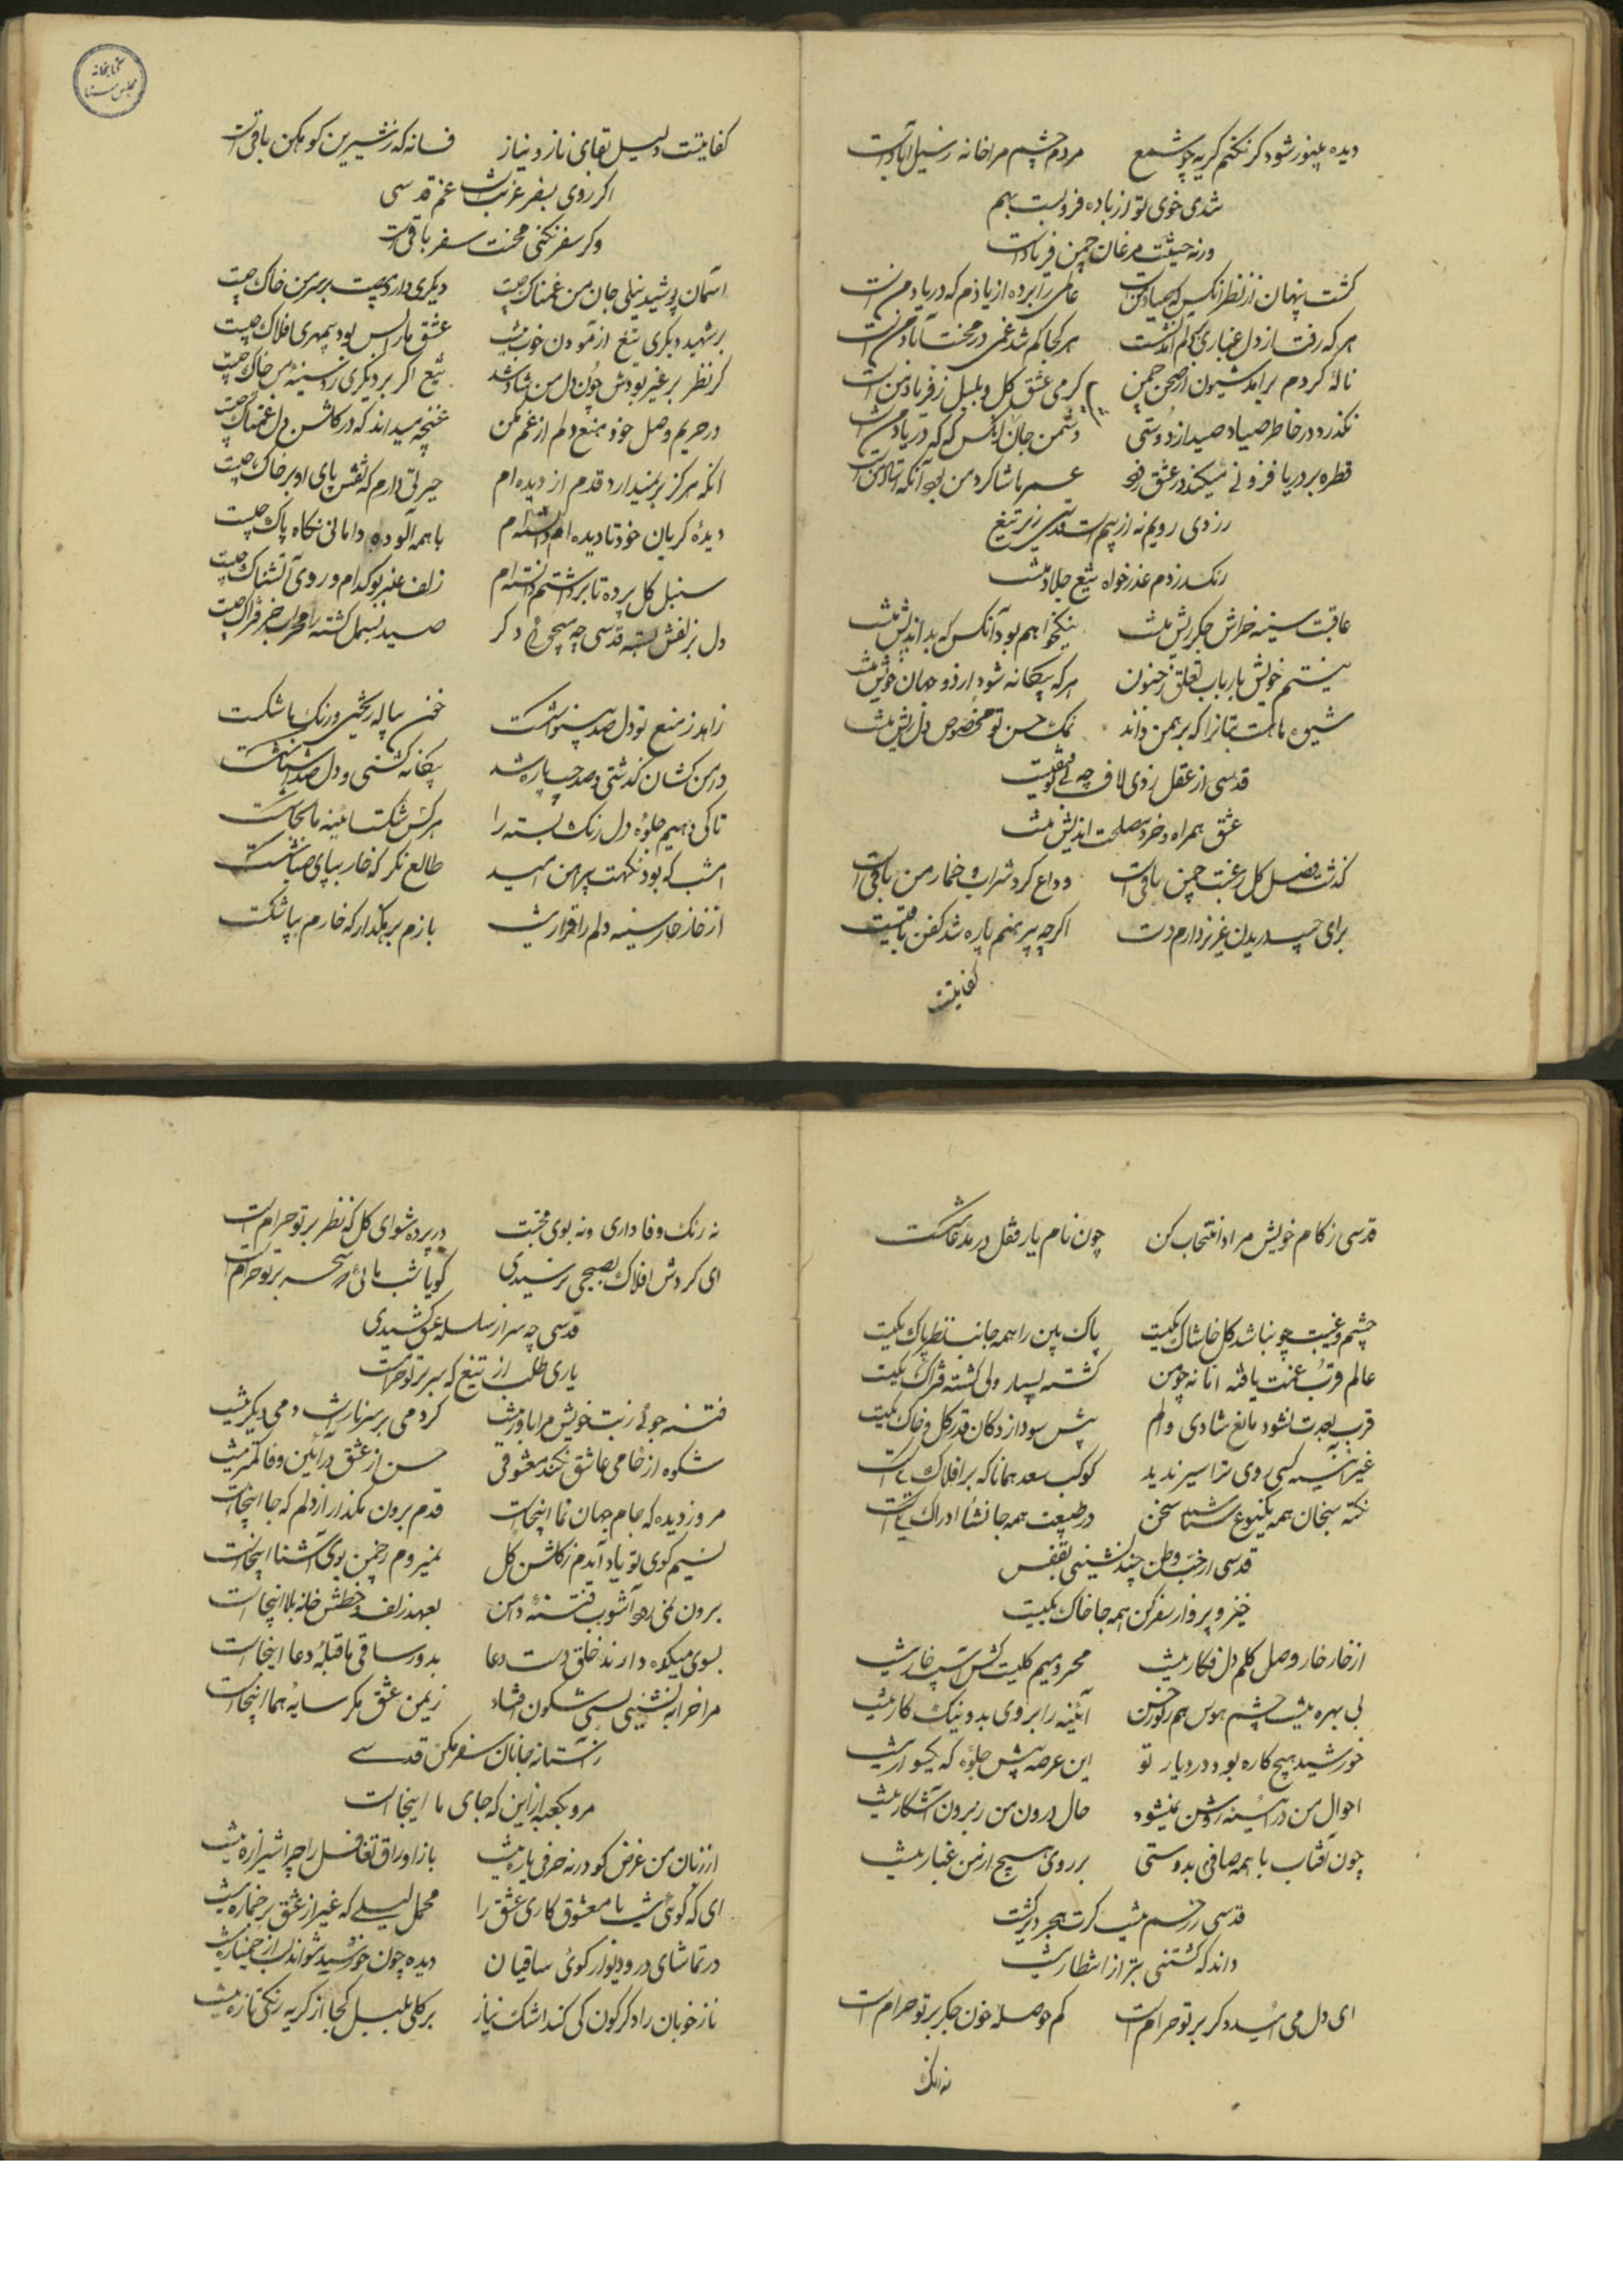 دیده بینور شود کر نکنم کریه چو شمع مردم چشم مرا خانه ز سیل آبادست
شدی خوی تو از باده فرو بست بهم
ورنه حیثیت مرغان چمن فریادست
کشت پنهان از نظر آنکس که صیاد منست عالمی را برده از یادم که در یاد منست
هر که رفت از دل غباری بر دلم نکذشت هر کجا کم شد غمی در محنت آباد منست
نالۀ کردم برآمد شیون از صحن چمن کرمی عشق کل و بلبل ز فریاد منست
نکذرد در خاطر صیاد صید از دوستی دشمن جان آنکس که که در یاد منست
قطره بر دریا فزونی میکند در عشق عمرها شاکرد من بود آنکه استاد منست
زردی رویم نه از بیم است قدسی زیر تیغ
رنک زردم عذرخواه تیغ جلاد منست
عاقبت سینه خراش جکر ریش منست نیکخواهم بود آنکس که بداندیش منست
نیستم خویش بارباب تعلق ز جنون هر که بیکانه شود از دو جهان خویش منست
شیوه بتانرا که برهمن داند نمک حسن تو مخصوص دل ریش منست
قدسی از عقل زدی لاف چه بی توفیقیست
عشق همراه و خرد مصلحت اندیش منست
کذشت فصل کل و رغبت چمن باقیست وداع کرد شراب و خمار من باقیست
برای جیب دریدن عزیز دارم دست اکر چه پیرهنم پاره شد کفن باقیست
کفایتست
کفایتست دلیل بقای ناز و نیاز فسانه که ز شیرین کوهکن باقیست
اکر روی بسفر غربتست غم قدسی
وکر سفر نکنی محنت سفر باقیست
آسمان پوشید نیلی جان من غمناک چیست دیکری دارد مصیبت بر سر من خاک چیست
بر شهید دیکری تیغ آزمودن خوب نیست عشق ما را بس بود بیمهری افلاک چیست
کر نظر بر غیر بودش چون دل من شاد شد تیغ اکر بر دیکری زد سینۀ من چاک چیست
در حریم وصل خود منع دلم از غم مکن غنچه میداند که در کلشن دل غمناک چیست
آنکه هرکز برنمیدارد قدم از دیده ام حیرتی دارم که نقش پای او بر خاک چیست
دیدۀ کریان خود تا دیده ام دانسته ام با همه آلوده دامانی نکاه پاک چیست
سنبل کل پرده تا برداشتم دانسته ام زلف عنبر بو کدام و روی آتشناک چیست
دل بزلفش بسته قدسی چه میجوئی دکر صید بسمل کشته را محراب جز فتراک چیست
زاهد ز منع تو دل صد بینوا شکست خون پیاله ریختی و رنک ما شکست
دامن کشان کذشتی و صد جیب پاره شد بیکانه کشتی و دل صد آشنا شکست
تا کی دهیم جلوه دل زنک بسته را هر کس شکست آینه ما بجا شکست
امشب که بود نکهت پیراهن امید طالع نکر که خار بپای صبا شکست
از خار خار سینه دلم را قرار نیست بازم بره کذار که خارم بپا شکست
قدسی ز کام خویش مراد انتخاب کن چون نام یار قفل در مدعا شکست
چشم و عیب چو نباشد کل و خاشاک یکیست پاک بین را همه جانب نظر پاک یکیست
عالم قرب غمت یافته اما نه چو من کشته بسیار ولی کشته فتراک یکیست
قرب و بعدت نشود مانع شادی و الم پیش سودازدکان قدر کل و خاک یکیست
غیر آئینه کسی روی ترا سیر ندید کوکب سعد همانا که بر افلاک یکیست
نکته سنجان همه یکنوع شناسند سخن در طبیعت همه جا نشأ ادراک یکیست
قدسی از حب وطن چند نشینی بقفس
خیز و پرواز سفر کن همه جا خاک یکیست
از خار خار وصل کلم دل فکار نیست محرومیم کلیست کش آسیب خار نیست
بی بهره نیست چشم هوس هم ز نور حسن آئینه را بروی بد و نیک کار نیست
خورشید هیچ کاره بود در دیار تو این عرصه پیش جلوه که یکسوار نیست
احوال من در آینه روشن نمیشود حال درون من ز برون آشکار نیست
چون آفتاب با همه صافم بدوستی بر روی هیچ از من غبار نیست
قدسی ز رحم نیست کرت بهجر دیر کشت
داند که کشتنی بتر از انتظار نیست
ای دل می امید دکر بر تو حرامست کم حوصله خون جکر بر تو حرامست
نه رنک
نه رنک وفا داری و نه بوی محبت در پرده شو ای کل که نظر بر تو حرامست
ای کردش افلاک بصبحی نرسیدی کویا شب مائی و سحر بر تو حرامست
قدسی چه سر از سلسله عشق کشیدی
یاری طلب از تیغ که سر بر تو حرامست
فتنه جوئی ز بت خویش مرا باور نیست کرد می بر سر نازست دمی دیکر نیست
شکوه از خامی عاشق نکند معشوقی حسن از عشق در آئین وفا کمتر نیست
مرو ز دیده که جام جهان نما اینجاست قدم برون مکذار از دلم که جا اینجاست
نسیم کوی تو یاد آیدم ز کلشن کل نمیروم ز چمن بوی آشنا اینجاست
برون نمی رود آشوب فتنه دامن بعهد زلف و خطش خانه بلا اینجاست
بسوی میکده دارند خلق دست دعا بدور ساقی ما قبله دعا اینجاست
مرا خرابه نشینی بسی شکون افتاد ز یمن عشق مکر سایه هما اینجاست
ز آستانه جانان سفر مکن قدسی
مرو بکعبه ازین که جای ما اینجاست
از زبان من غرض کو ورنه حرفی پاره نیست باز اوراق تغافل را چرا شیرازه نیست
ای که کوئی نیست با معشوق کاری عشق را محمل لیلی که غیر از عشق بر جمازه نیست
در تماشای در و دیوار کوی ساقیان دیده چون خورشید شواند لب از خمیازه نیست
ناز خوبان را دکرکون کی کند اشک نیاز بر کلی بلبل کجا از کریه رنکی تازه نیست